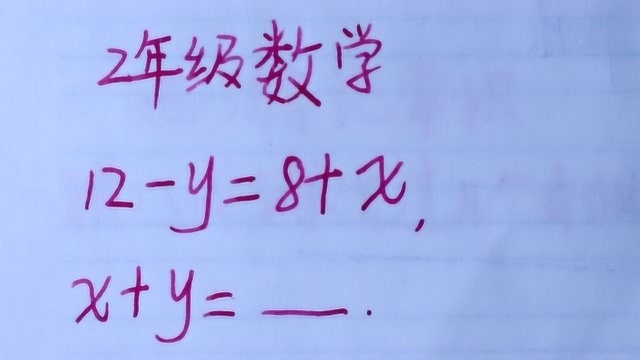 2年级数学
12-y=8+x,
x+y=___.